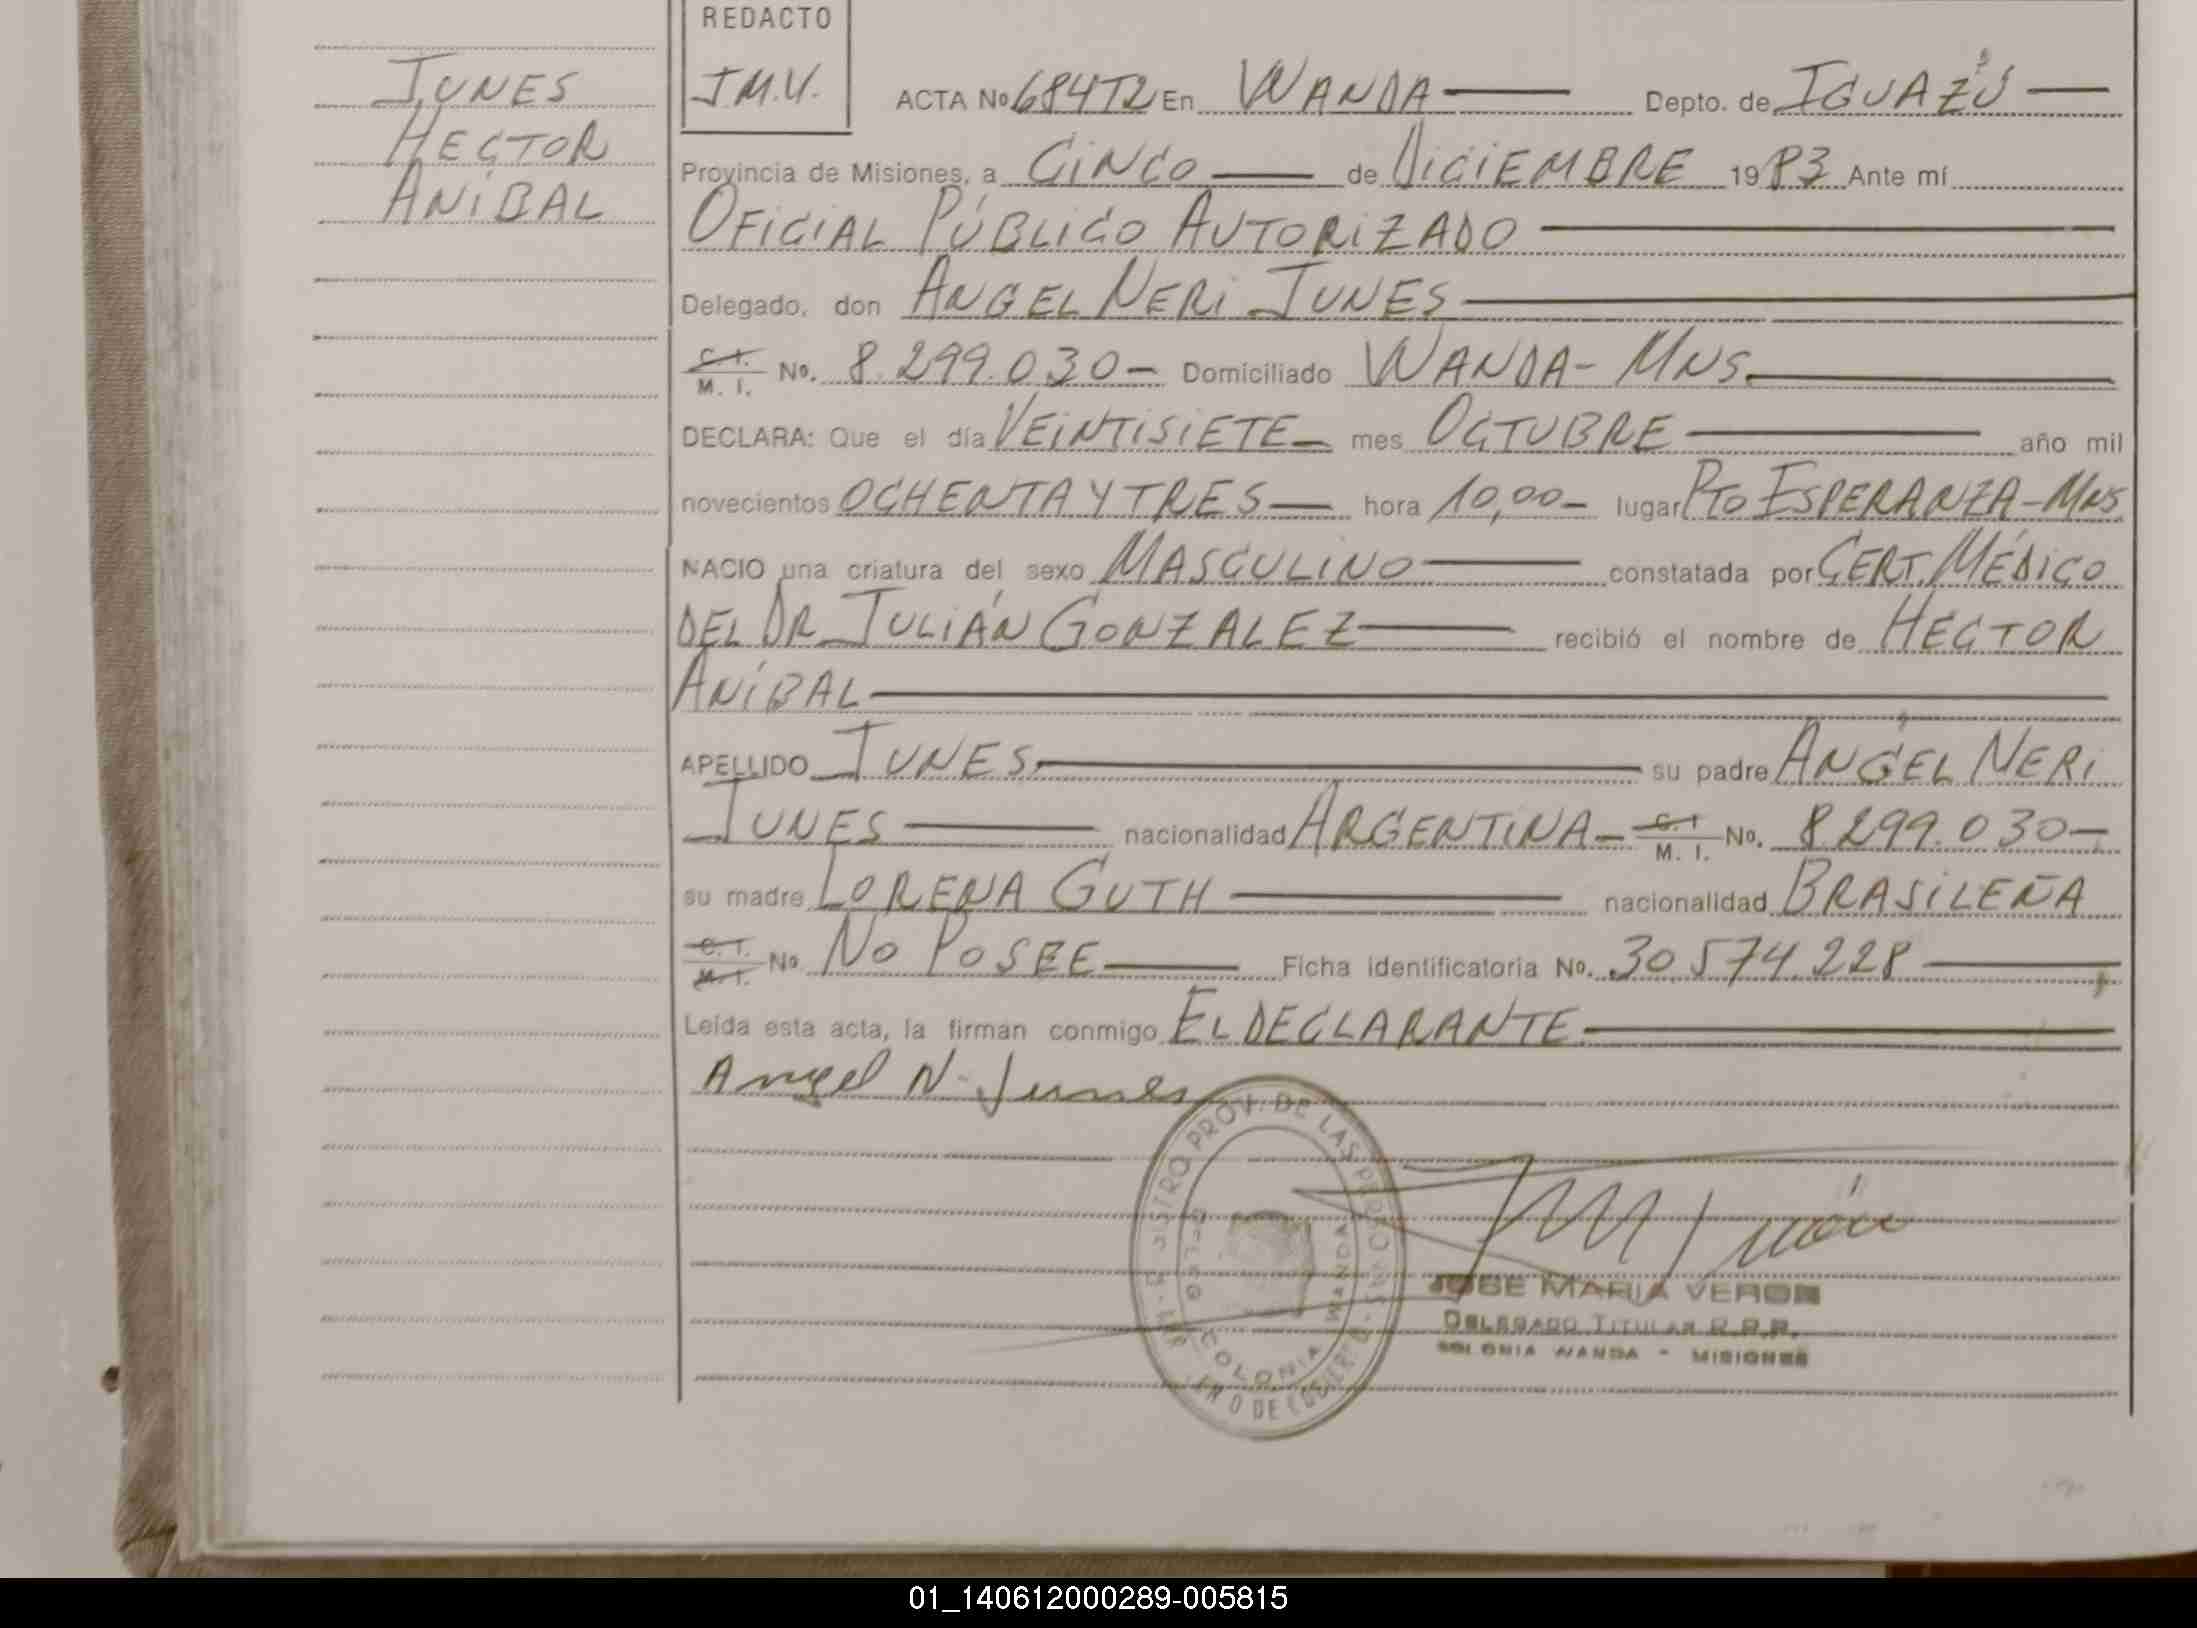 JUNES
HECTOR
ANÍBAL
REDACTO
J.M.V.
ACTA No 684T2 En WANDA Depto. de IGUAZÚ
Provincia de Misiones, a CINCO de DICIEMBRE 1983 Ante mí
OFICIAL PÚBLICO AUTORIZADO
Delegado, don ANGEL NERI JUNES
C. I. M. I. No. 8.299.030- Domiciliado WANDA-MNS.
DECLARA: Que el día VEINTISIETE mes OCTUBRE año mil
novecientos OCHENTA Y TRES hora 10,00- lugar PTO ESPERANZA-MNS
NACIO una criatura del sexo MASCULINO constatada por CERT. MÉDICO
DEL DR JULIÁN GONZALEZ recibió el nombre de HECTOR
ANÍBAL
APELLIDO JUNES su padre ANGEL NERI
JUNES nacionalidad ARGENTINA- C. I. M. I. No. 8.299.030-
su madre LORENA GUTH nacionalidad BRASILEÑA
C. I. M. I. No NO POSEE Ficha identificatoria No. 30.574.228
Leída esta acta, la firman conmigo EL DECLARANTE
Angel N. Junes
PROV. DE LAS PERSONAS
COLONIA WANDA
JOSE MARIA VERON
DELEGADO TITULAR R.P.P.
COLONIA WANDA - MISIONES
01_140612000289-005815